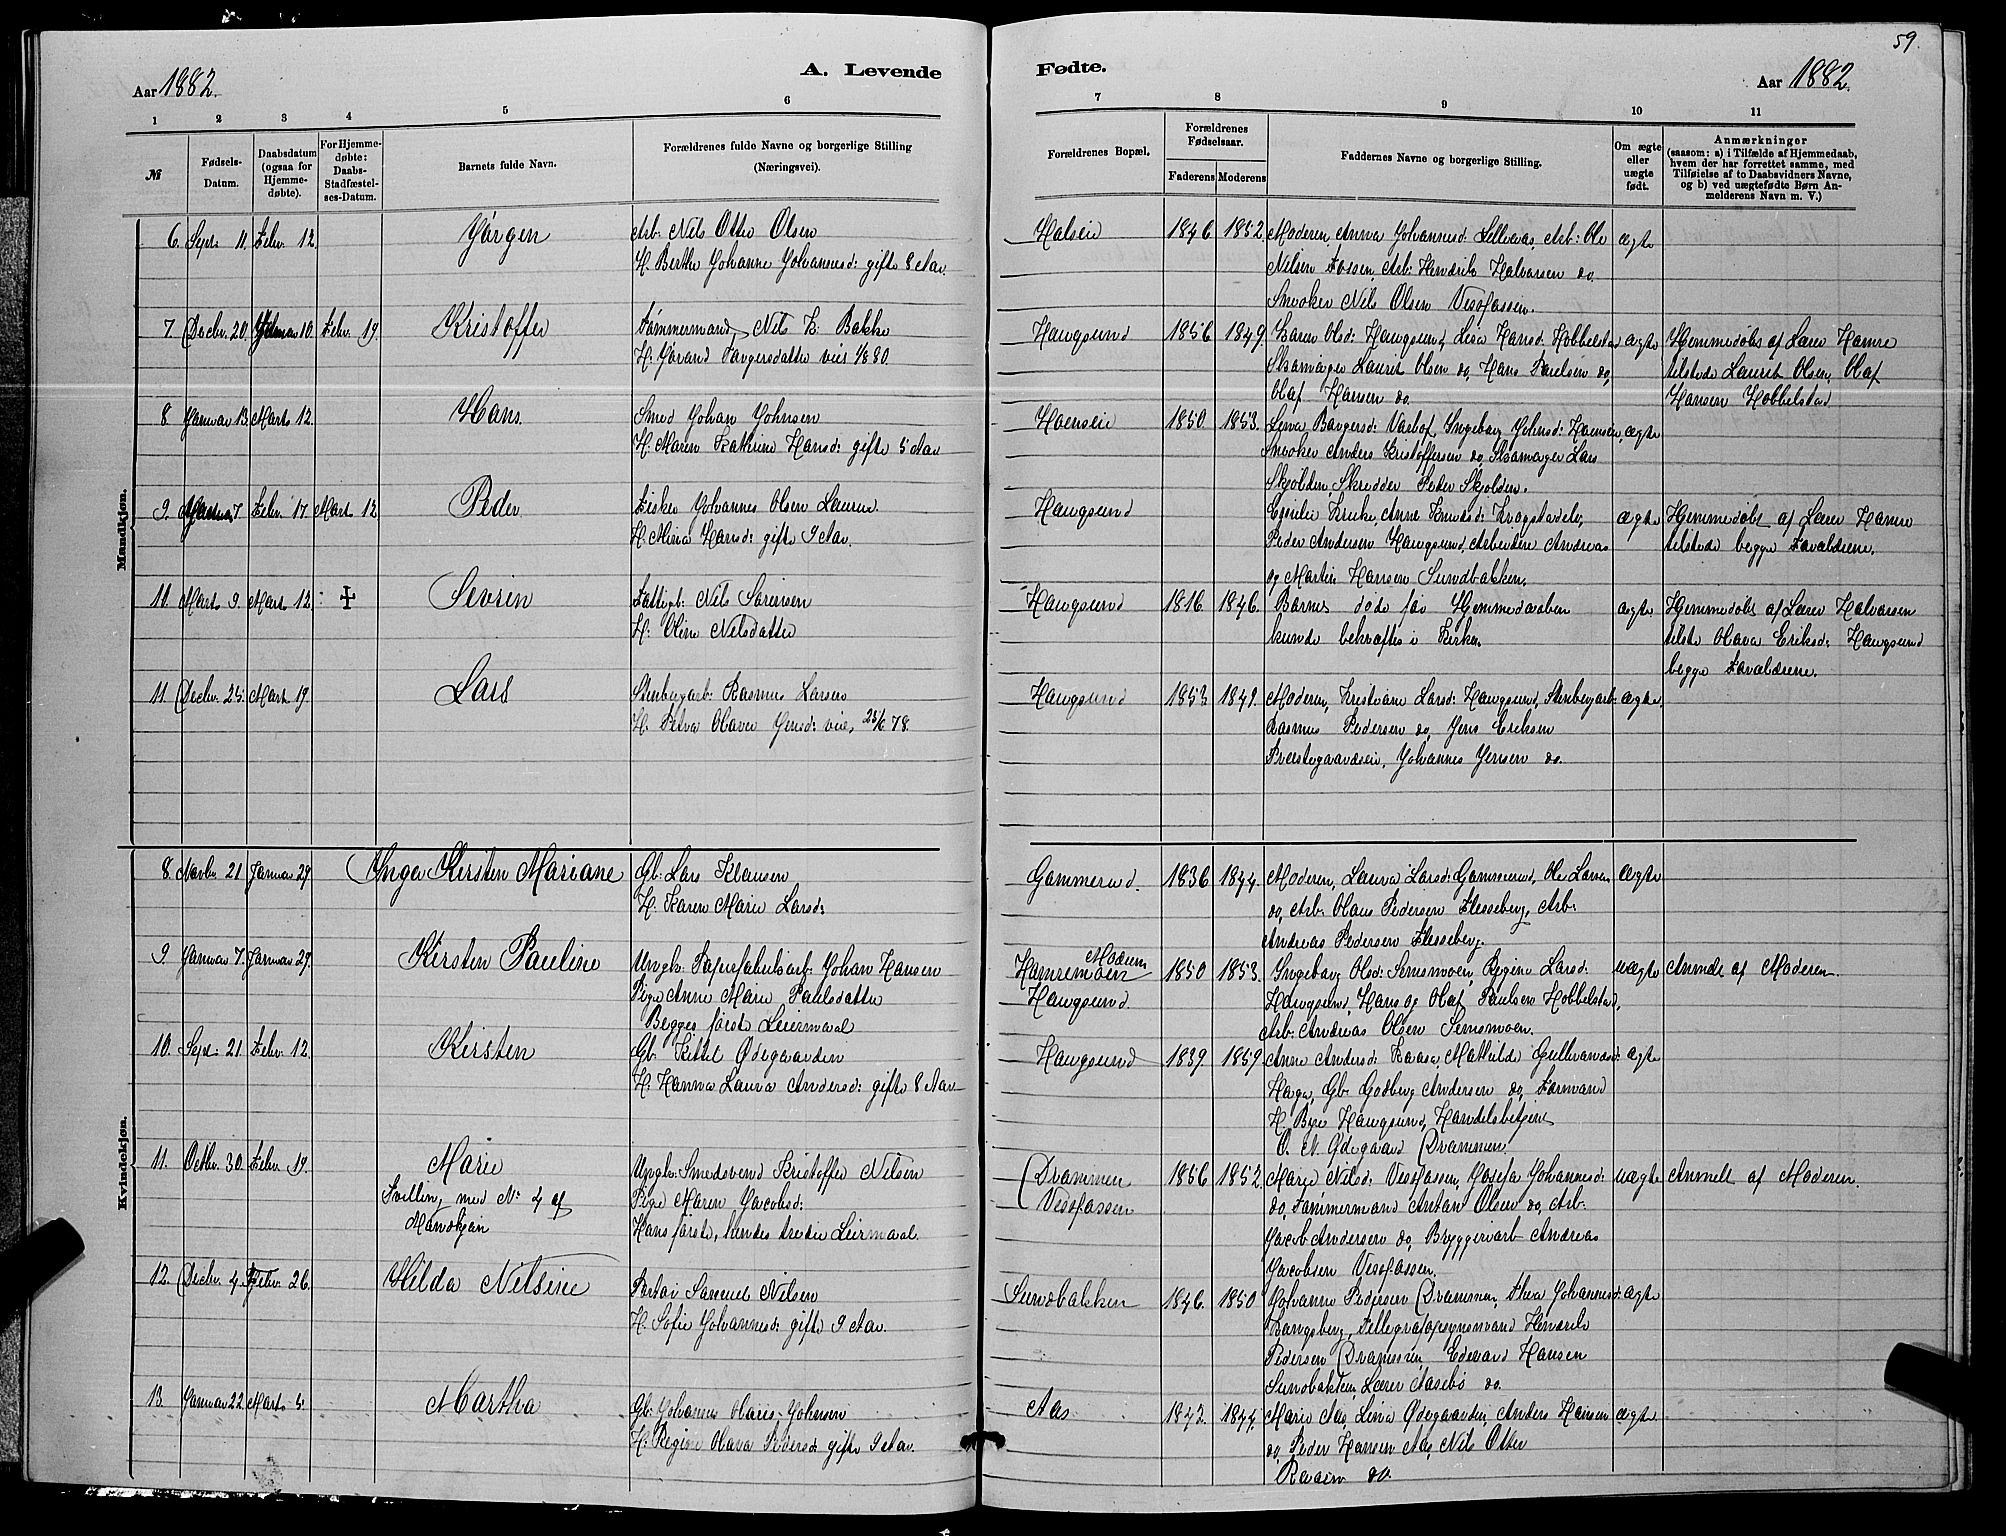 59.
Aar 1882.
A. Levende
Fødte.
Aar 1882.
1 2 3 4 5 6 7 8 9 10 11
№
Fødsels-
Datum.
Daabsdatum
(ogsaa for
Hjemme-
døbte).
For Hjemme-
døbte:
Daabs-
Stadfæstel-
ses-Datum.
Barnets fulde Navn.
Forældrenes fulde Navne og borgerlige Stilling
(Næringsvei).
Forældrenes Bopæl.
Forældrenes
Fødselsaar.
Faderens Moderens
Faddernes Navne og borgerlige Stilling.
Om ægte
eller
uægte
født.
Anmærkninger
(saasom: a) i Tilfælde af Hjemmedaab,
hvem der har forrettet samme, med
Tilføielse af to Daabsvidners Navne,
og b) ved uægtefødte Børn An-
melderens Navn m. V.)
Mandkjøn.
6. Sept: 11. Febr. 12. Jørgen Arb: Nils Otto Olsen Halseie 1846 1852. Moderen, Anna Johannesd: Arb: Ole ægte
H. Berthe Johanne Johannesd: gifte 8 Aar. Nilsen Fossen, Arb: Hendrik Halvorsen do.
Snedker Nils Olsen Vestfossen.
7. Decbr. 20. 10. Febr. 19. Kristoffer Tømmermand Nils K: Bakke Haugsund 1856 1849. Karen Olsd: Haugsund, Lisa Hansd: Hobbelstad ægte Hjemmedøbt af Lærer Hamre
H: Jørand Torgersdatter viet 1/8 80. Skomager Laurits Olsen do, Hans Paulsen do, tilstede Laurits Olsen, Olaf
Olaf Hansen do. Hansen Hobbelstad
8. Januar 13. Marts 12. Hans. Smed Johan Johnsen Hoenseie 1850. 1853. Ingeborg Johnsd: Hoensei, ægte
H. Maren Kathrine Hansd: gifte 5 Aar Snedker Anders Kristoffersen do, Skomager Lars
Skjolden, Skredder Peder Skjolden.
9. 7 Febr. 17 Mart 12 Peder Fisker Johannes Olsen Haugsund Emilie Anne Knudsd: ægte Hjemmedøbt af Lærer Hamre
H. Mina Hansd: gifte 9 Aar. Peder Andersen Haugsund, Arbeidere Andreas tilstede begge Forældrene.
og Martin Hansen Sundbakken.
10. Marts 9. Marts 12. ‡ Sevrin Fattigl: Nils Sørensen Haugsund 1816. 1846. Barnet døde før Hjemmedaaben ægte Hjemmedøbt af Lærer Halvorsen
H: Oline Nilsdatter kunde bekræftes i Kirken. tilstede Olava Eriksd: Haugsund
begge Forældrene.
11. Decbr. 25. Marts 19. Lars Stenbrygarb: Rasmus Larsen Haugsund 1853 1849. Moderen, Kristiane Larsd: Haugsund, ægte
H. Petra Olava Jensd: viet 23/6 78. Rasmus Pedersen do, Jens Eriksen
Præstegaardseie, Johannes Jensen do.
Kvindekjøn.
8. Novbr 21 Januar 29 Inga Kirsten Mariane Gb: Lars Klausen Gammerud. 1836 1844. Moderen, Laura Larsd: Gammerud, Ole Larsen ægte
H: Karen Marie Larsd: do, Arb: Olaus Pedersen Flesseberg, Arb:
Andreas Pedersen Flesseberg.
9 Januar 7. Januar 29. Kirsten Pauline Ungk: Papirfabriksarb: Johan Hansen Modum Hamremoen 1850 1853. Ingeborg Olsd: Semsmoen, Regine Larsd: uægte Anmeldt af Moderen.
Pige Anne Marie Paulsdatter Haugsund Haugsund, Hans og Olaf Paulsen Hobbelstad,
Begges første Leiermaal Arb: Andreas Olsen Semsmoen.
10. Sept: 21. Febr. 12. Kirsten Gb. Kittil Ødegaarden Haugsund 1839. 1859. Anne Andersd: Kaasa, Mathilde Gulbrandsd: ægte
H: Hanna Laura Andersd: gifte 8 Aar Haga, Gb: Godberg Andersen do, Formand
H. Bye Haugsund, Handelsbetjent
O. N. Ødegaard Drammen.
11. Octbr. 30. Febr. 19. Marie Ungk: Smedsvend Kristoffer Nilsen Drammen 1856 1852. Marie Nilsd: Vestfossen, Josefa Johannesd: uægte Anmeldt af Moderen.
Tvilling med No 4 af Pige Maren Jacobsd: Vestfossen do, Tømmermand Anton Olsen do, Arb:
Mandkjøn Hans første, hendes tredie Leiermaal. Jacob Andersen do, Bryggeriarb Andreas
Jacobsen Vestfossen.
12. Decbr. 4. Febr. 26. Hilda Nilsine Samuel Nilsen Sundbakken 1846. 1850 Johanne Pedersen Drammen, Thea Johannesd: ægte
H. Sofie Johannesd: gifte 9 Aar. Bangsberg, Telegrafopsynsmand Hendrik
Pedersen Drammen, Edevard Hansen
Sundbakken, Lærer Aasebø do.
13. Januar 22 Marts 5. Martha Gb: Johannes Olaus Johnsen Aas 1842. 1844. Marie Aas, Lina Ødegaarden, Anders Hansen ægte
H. Regine Olava Pedersd: gifte 9 Aar. do, Peder Hansen Aas, Nils Otter
do.